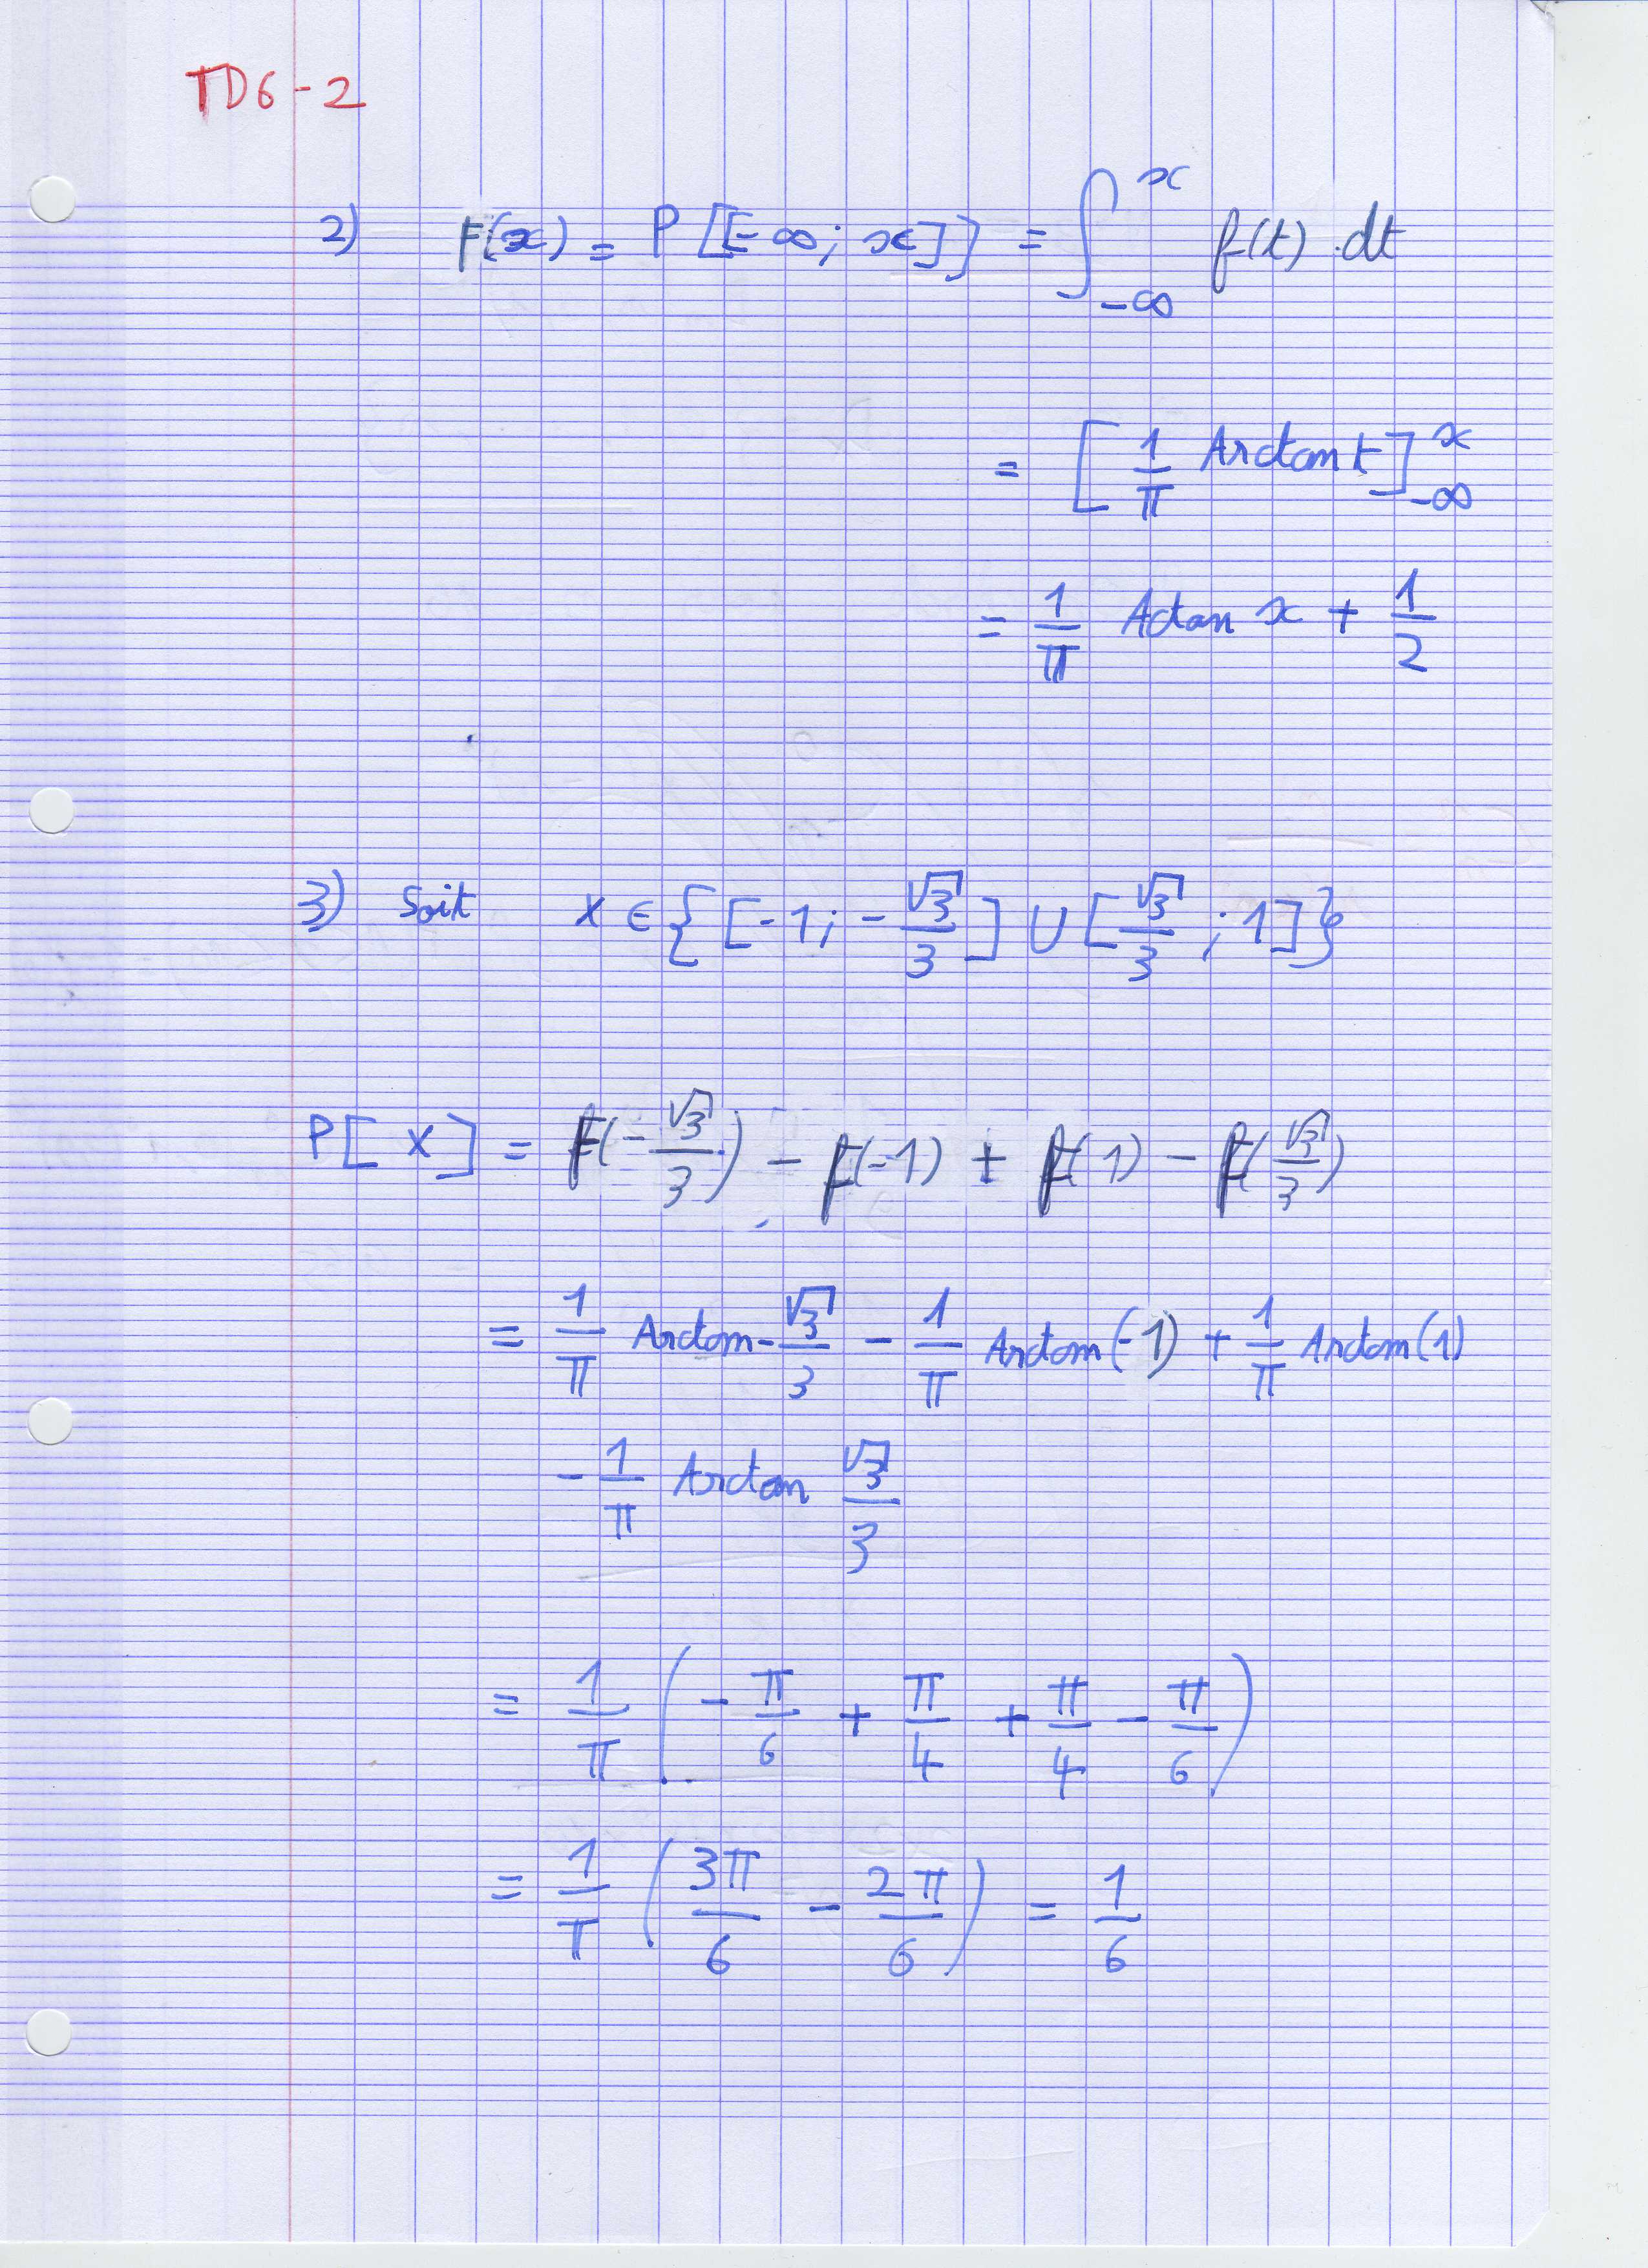 TD6-2
2) F(x) = P[[-∞; x]] = ∫_{-∞}^{x} f(t).dt
= [1/π Arctan t]_{-∞}^{x}
= 1/π Actan x + 1/2
3) Soit X ∈ {[-1; -√3/3] U [√3/3; 1]}
P[X] = F(-√3/3) - F(-1) + F(1) - F(√3/3)
= 1/π Arctan -√3/3 - 1/π Arctan(-1) + 1/π Arctan(1)
- 1/π Arctan √3/3
= 1/π (-π/6 + π/4 + π/4 - π/6)
= 1/π (3π/6 - 2π/6) = 1/6